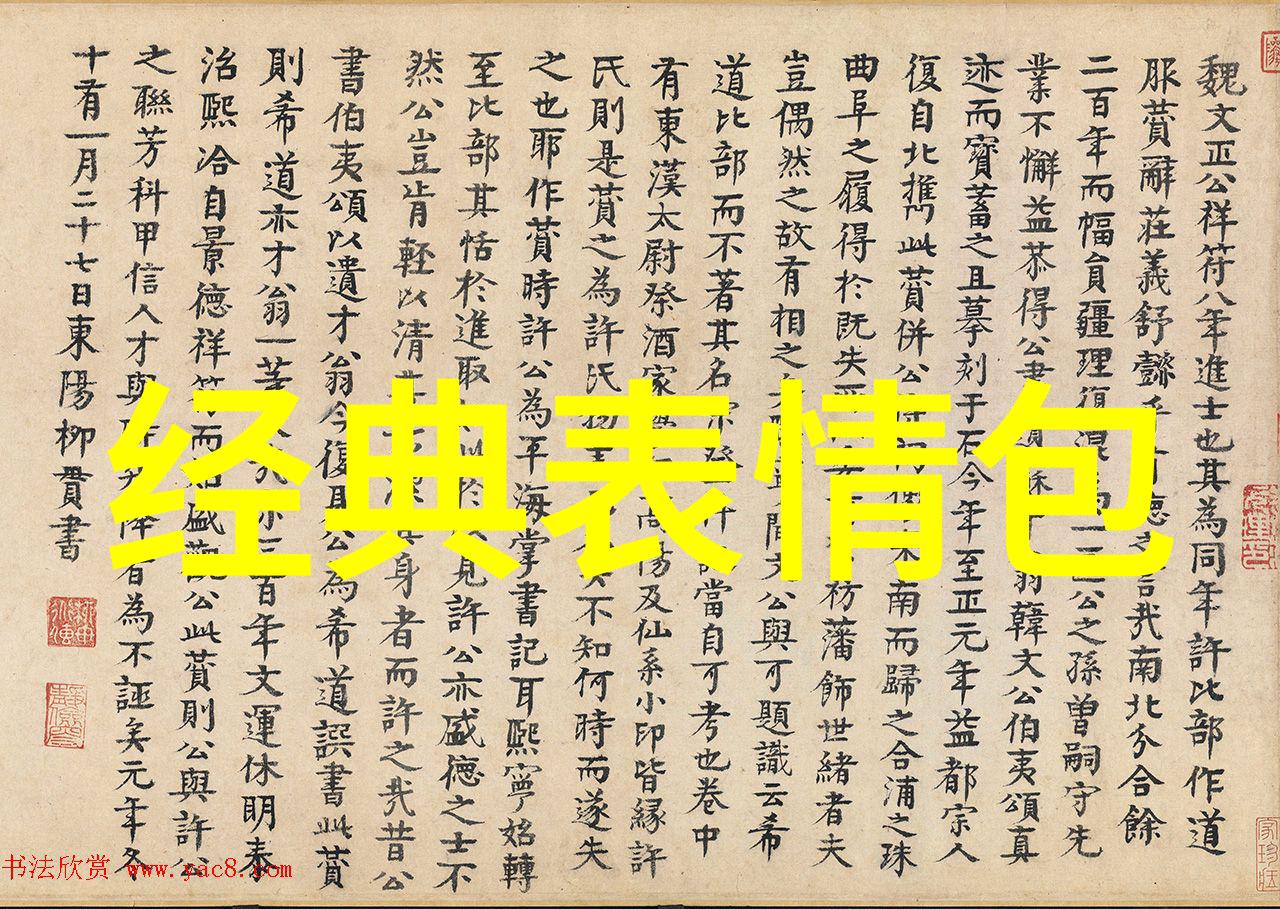 魏文正公祥符八年進士也其為同年許比部作道
服贊辭莊義舒懿乎 德之言哉南北分合餘
二百年而幅員疆理復混 一 公之孫曾嗣守先
業不懈益恭得公書遺蘇 翁韓文公伯夷頌真
迹而寶蓄之且摹刻于石今年至正元年益都宗人
復自北攜此贊併公 南而歸之合浦之珠
曲阜之履得於既失 枋藩飾世緒者夫
豈偶然之故有相之 間文公與可題識云希
道比部而不著其名 當自可考也卷中
有東漢太尉祭酒家 高陽及仙系小印皆緣許
氏則是贊之為許氏物 不知何時而遂失
之也耶作贊時許公為平海掌書記耳熙寧始轉
至比部其恬於進取 見許公亦盛德之士不
然公豈肯輕以清 其身者而許之哉昔公
書伯夷頌以遺才翁今復 公為希道譔書此贊
則希道亦才翁一等 百年文運休明泰
治熙洽自景德祥符而 盛觀公此贊則公與許公
之聯芳科甲信人才與 者為不誣矣元年冬
十有一月二十七日東陽柳貫書
经典表情包
书法欣赏 www.yac8.com